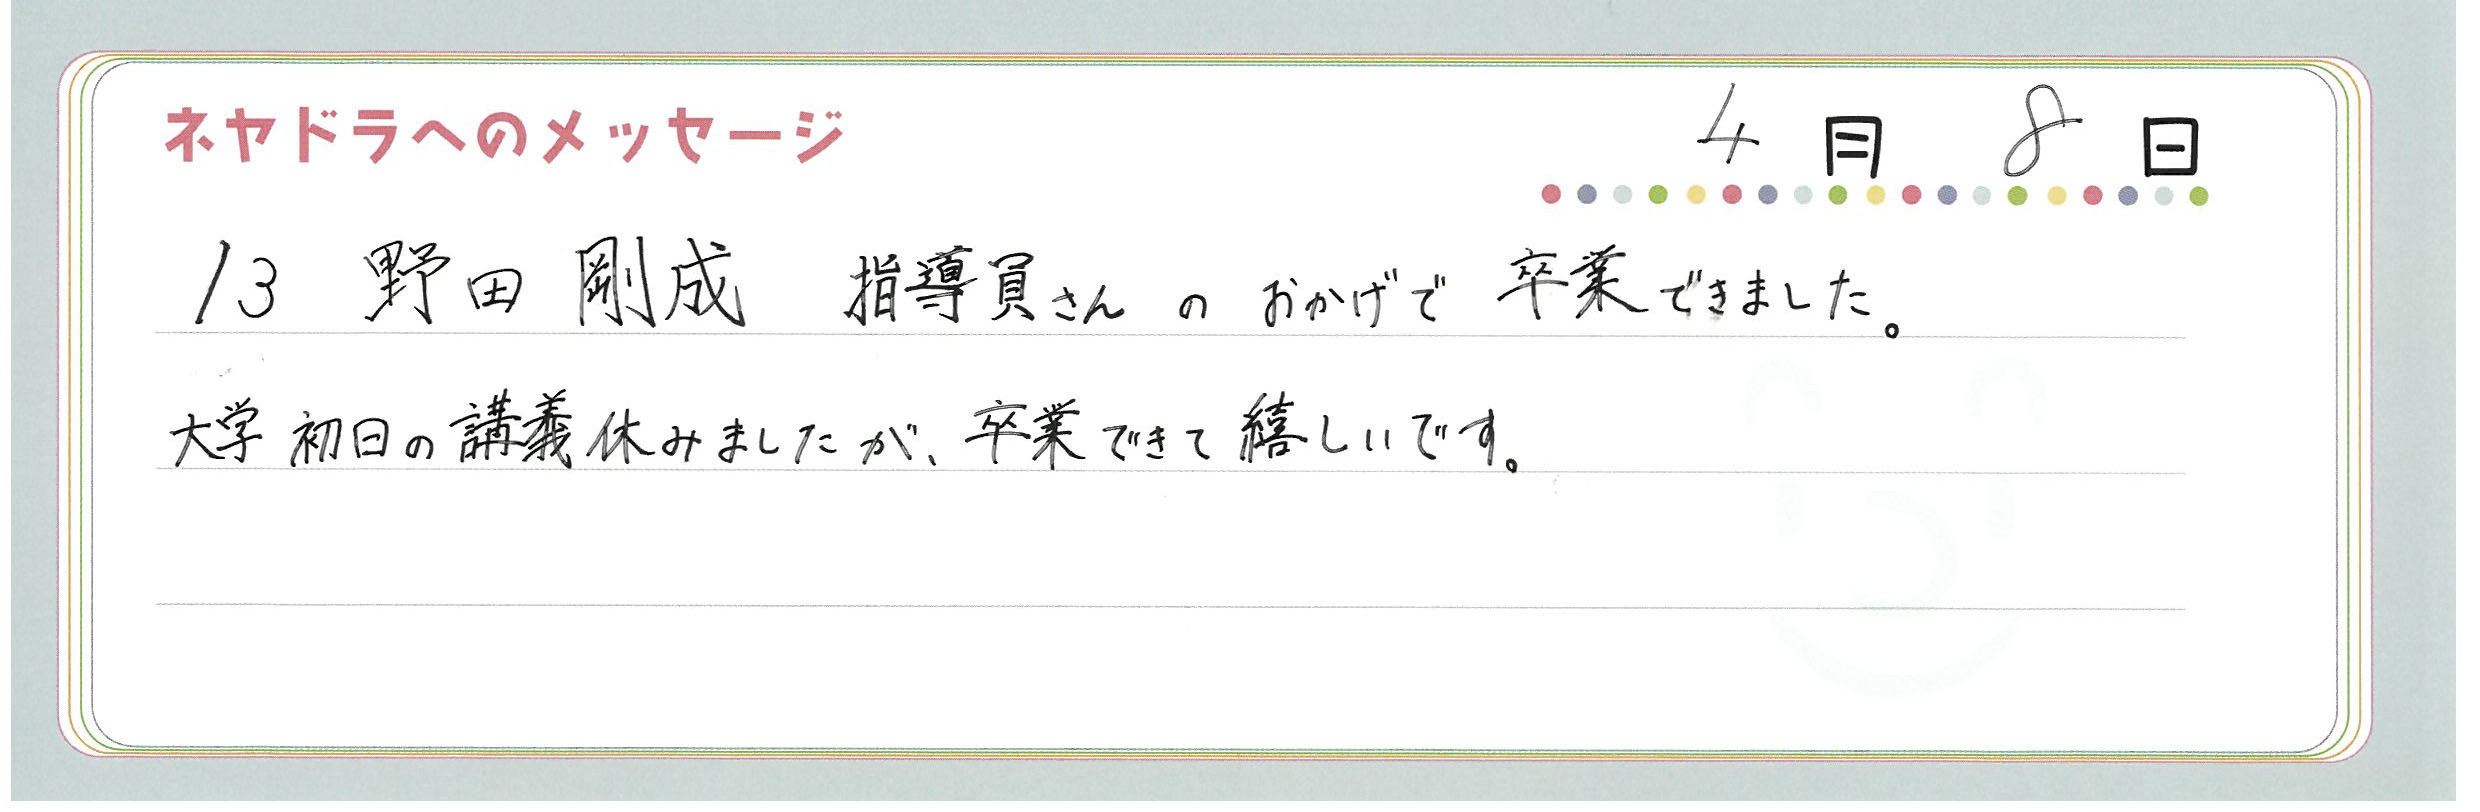 ネヤドラへのメッセージ
4月 8日
13 野田 剛成 指導員さん の おかげで 卒業できました。
大学 初日の講義休みましたが、卒業できて嬉しいです。